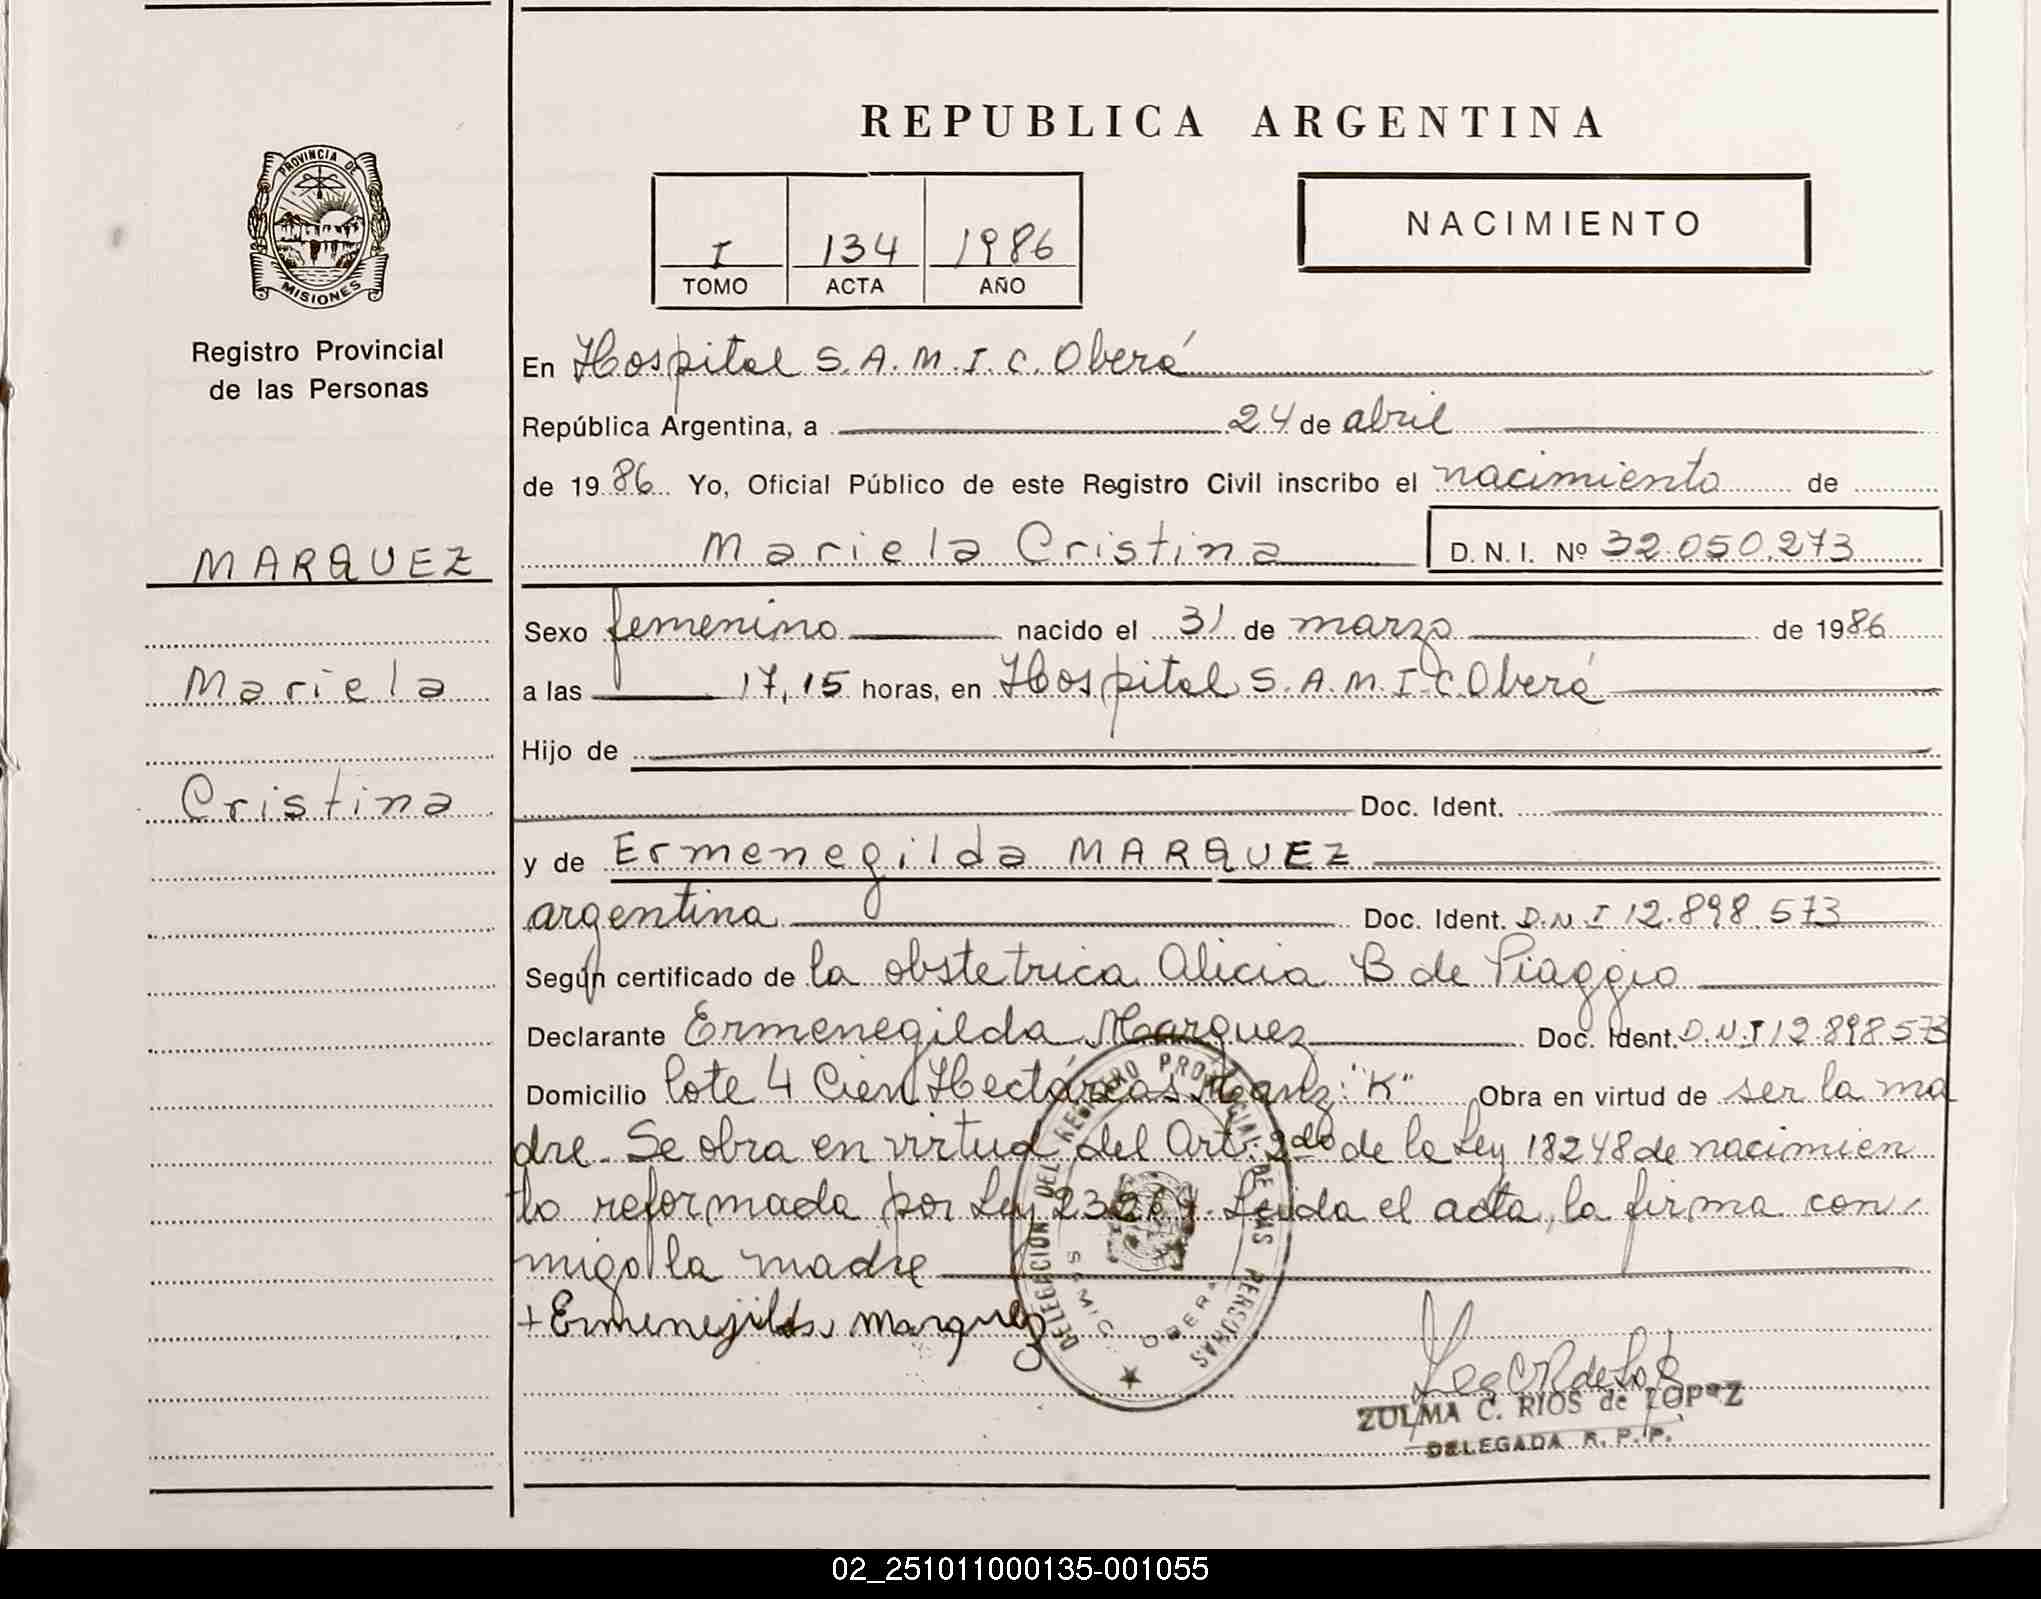 REPUBLICA ARGENTINA
PROVINCIA DE
MISIONES
Registro Provincial
de las Personas
MARQUEZ
Mariela
Cristina
I 134 1986
TOMO ACTA AÑO
NACIMIENTO
En Hospital S.A.M.I.C. Oberá
República Argentina, a 24 de abril
de 1986 Yo, Oficial Público de este Registro Civil inscribo el nacimiento de
Mariela Cristina D. N. I. Nº 32.050.273
Sexo femenino nacido el 31 de marzo de 1986
a las 17,15 horas, en Hospital S.A.M.I.C Oberá
Hijo de
Doc. Ident.
y de Ermenegilda MARQUEZ
argentina Doc. Ident. D.N.I 12.898.573
Según certificado de la obstetrica Alicia B de Piaggio
Declarante Ermenegilda Marquez Doc. Ident. D.N.I 12.898.573
Domicilio lote 4 Cien Hectáreas Manz: "K" Obra en virtud de ser la ma
dre. Se obra en virtud del Art: 2do de la Ley 18248 de nacimien
to reformada por Ley 23264. Leida el acta, la firma con
migo la madre
+ Ermenejilda marquez
DELEGACION DEL REGISTRO PROVINCIAL DE LAS PERSONAS
SAMIC OBERA
ZULMA C. RIOS de LOPEZ
DELEGADA R. P. P.
02_251011000135-001055